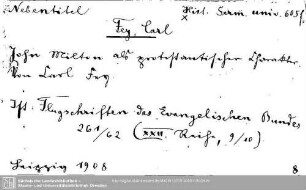 Nebentitel Hist. Germ. univ. 605
Fey, Carl
John Milton als protestantischer Charakter.
Von Carl Fey
Ist: Flugschriften des Evangelischen Bundes
261/62 (XXII. Reihe, 9/10).
Leipzig 1908 8